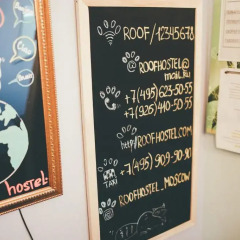 ROOF/12345678
@ROOFHOSTEL@
mail.ru
+7(495)623-50-55
+7(926)410-50-55
http/ROOFHOSTEL.COM
TAXI +7(495) 909-90-90
ROOFHOSTEL_MOSCOW
hostel